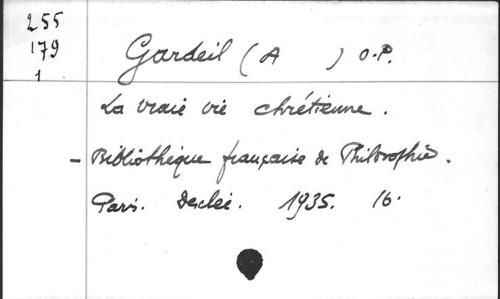 255
179
1
Gardeil (A ) O.P.
La vraie vie chrétienne.
- Bibliothèque française de Philosophie.
Paris. Desclée. 1935. 16.